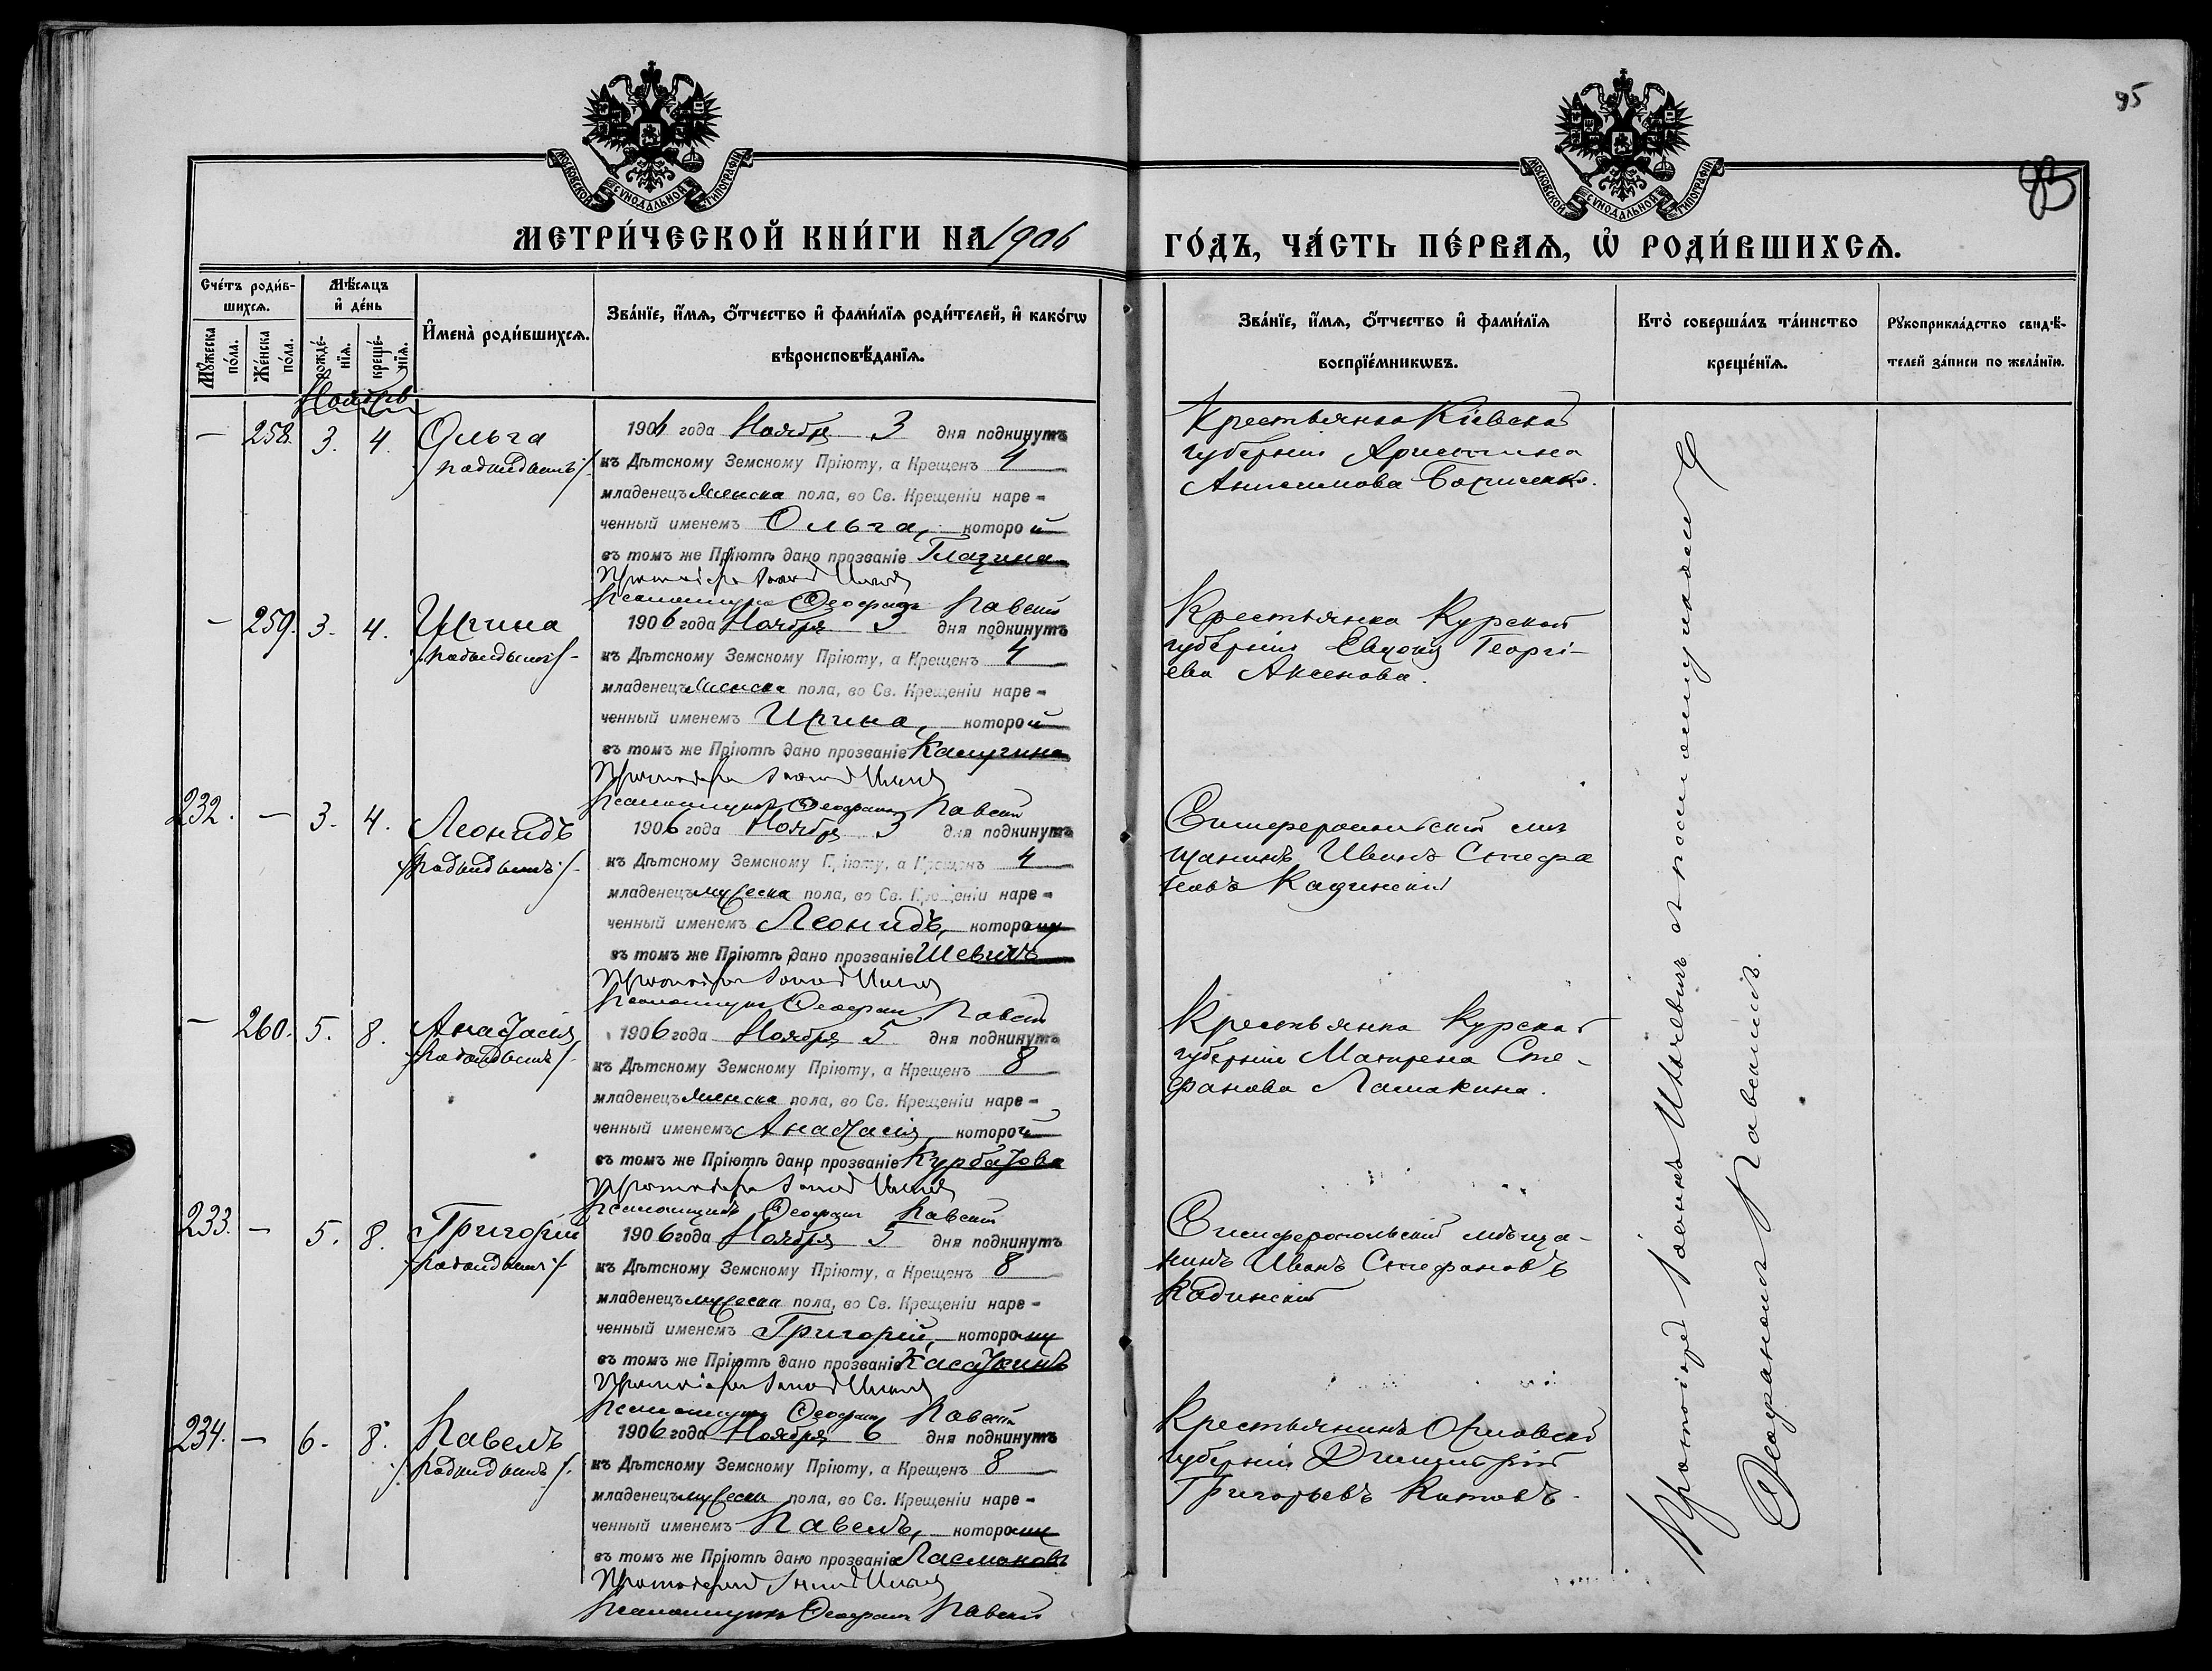 95
95
МОСКОВСКОЙ СѴНОДАЛЬНОЙ ТИПОГРАФІИ
МОСКОВСКОЙ СѴНОДАЛЬНОЙ ТИПОГРАФІИ
МЕТРИ́ЧЕСКОЙ КНИ́ГИ НА 1906
ГО́ДЪ, ЧА́СТЬ ПЕ́РВАѦ, Ѡ҆ РОДИ́ВШИХСѦ.
Сче́тъ роди́в-
шихсѧ.
Мꙋ́жеска по́ла.
Же́нска по́ла.
Мѣ́сѧцъ
и҆ де́нь
рожде́-
нїѧ.
креще́-
нїѧ.
И҆мена̀ роди́вшихсѧ.
Зва́нїе, и҆́мѧ, ѻ҆́тчество и҆ фами́лїѧ роди́телей, и҆ како́гѡ
вѣроисповѣ́данїѧ.
Зва́нїе, и҆́мѧ, ѻ҆́тчество и҆ фами́лїѧ
воспрїе́мникѡвъ.
Кто̀ соверша́лъ та́инство
креще́нїѧ.
Рꙋкоприкла́дство свидѣ́-
телей за́писи по жела́нїю.
Ноябрь
— 258. 3. 4. Ольга
/подкидышъ/.
1906 года Ноября 3 дня подкинутъ
къ Дѣтскому Земскому Пріюту, а Крещенъ 4
младенецъ женска пола, во Св. Крещеніи наре-
ченный именемъ Ольга, которой
въ томъ же Пріютѣ дано прозваніе
Псаломщикъ Ѳеофанъ Павскій
Крестьянка Кіевской
губерніи
Анисимова
— 259. 3. 4. Ирина
/подкидышъ/.
1906 года Ноября 3 дня подкинутъ
къ Дѣтскому Земскому Пріюту, а Крещенъ 4
младенецъ женска пола, во Св. Крещеніи наре-
ченный именемъ Ирина, которой
въ томъ же Пріютѣ дано прозваніе Калугина
Псаломщикъ Ѳеофанъ Павскій
Крестьянка Курской
губерніи Евдокія Георгі-
ева Аксенова.
232. — 3. 4. Леонидъ
/подкидышъ/.
1906 года Ноября 3 дня подкинутъ
къ Дѣтскому Земскому Пріюту, а Крещенъ 4
младенецъ мужеска пола, во Св. Крещеніи наре-
ченный именемъ Леонидъ, которому
въ томъ же Пріютѣ дано прозваніе
Псаломщикъ Ѳеофанъ Павскій
Симферопольскій мѣ
щанинъ Иванъ Стефа
новъ Кадинскій
— 260. 5. 8. Анастасія
/подкидышъ/.
1906 года Ноября 5 дня подкинутъ
къ Дѣтскому Земскому Пріюту, а Крещенъ 8
младенецъ женска пола, во Св. Крещеніи наре-
ченный именемъ Анастасія, которой
въ томъ же Пріютѣ дано прозваніе Курбатова
Псаломщикъ Ѳеофанъ Павскій
Крестьянка Курской
губерніи Матрена Сте-
фанова Ламакина.
233. — 5. 8. Григорій
/подкидышъ/.
1906 года Ноября 5 дня подкинутъ
къ Дѣтскому Земскому Пріюту, а Крещенъ 8
младенецъ мужеска пола, во Св. Крещеніи наре-
ченный именемъ Григорій, которому
въ томъ же Пріютѣ дано прозваніе Касаткинъ
Псаломщикъ Ѳеофанъ Павскій
Симферопольскій мѣща-
нинъ Иванъ Стефановъ
Кадинскій
234. — 6. 8. Павелъ
/подкидышъ/.
1906 года Ноября 6 дня подкинутъ
къ Дѣтскому Земскому Пріюту, а Крещенъ 8
младенецъ мужеска пола, во Св. Крещеніи наре-
ченный именемъ Павелъ, которому
въ томъ же Пріютѣ дано прозваніе
Псаломщикъ Ѳеофанъ Павскій
Крестьянинъ Орловской
губерніи Димитрій
Григорьевъ Китовъ.
Протоіерей Іоаннъ съ псаломщикомъ
Ѳеофаномъ Павскимъ.